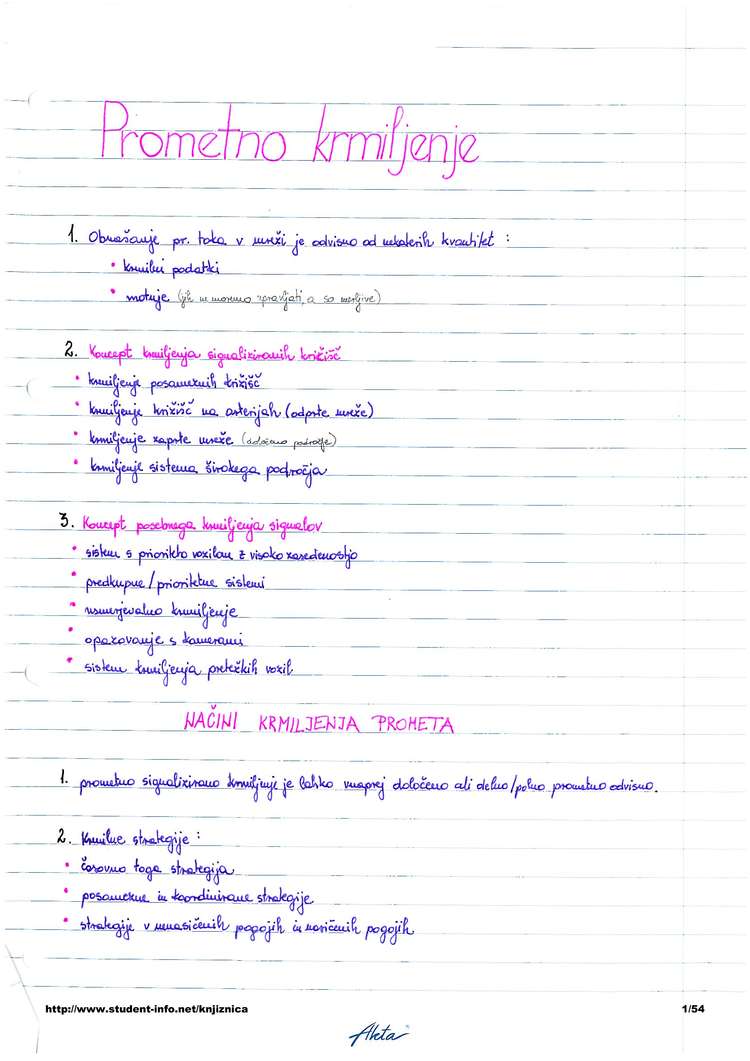 Prometno krmiljenje
1. Obnašanje pr. toka v mreži je odvisno od nekaterih kvantitet :
• krmilni podatki
• motnje (jih ne moremo upravljati, a so merljive)
2. Koncept krmiljenja signaliziranih križišč
• krmiljenje posameznih križišč
• krmiljenje križišč na arterijah (odprte mreže)
• krmiljenje zaprte mreže (določeno področje)
• krmiljenje sistema širokega področja
3. Koncept posebnega krmiljenja signalov
• sistem s prioriteto vozilom z visoko zasedenostjo
• predkupne / prioritetne sistemi
• usmerjevalno krmiljenje
• opazovanje s kamerami
• sistem krmiljenja pretežkih vozil
NAČINI KRMILJENJA PROMETA
1. prometno signalizirano krmiljenje je lahko vnaprej določeno ali delno/polno prometno odvisno.
2. Krmilne strategije :
• časovno toga strategija
• posamezne in koordinirane strategije
• strategije v nenasičenih pogojih in nasičenih pogojih
http://www.student-info.net/knjiznica
1/54
Akta